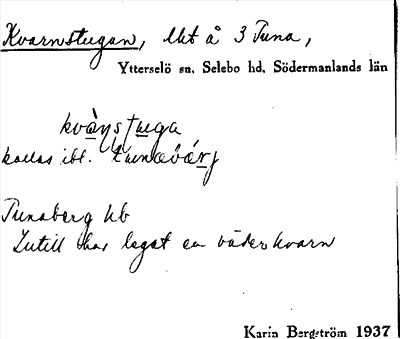 Kvarnstugan, lht å 3 Tuna,
Ytterselö sn, Selebo hd, Södermanlands län
kallas ibl.
Tunaberg hb
Intill har legat en väderkvarn
Karin Bergström 1937